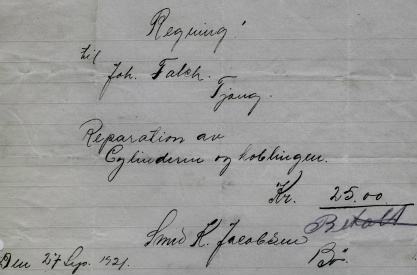 Regning!
til
Joh. Falch.
Tjong.
Reparation av
Cylinderen og koblingen.
Kr. 25.00
Betalt
Smed K. Jacobsen
Bø.
Den 27 Sep. 1921.